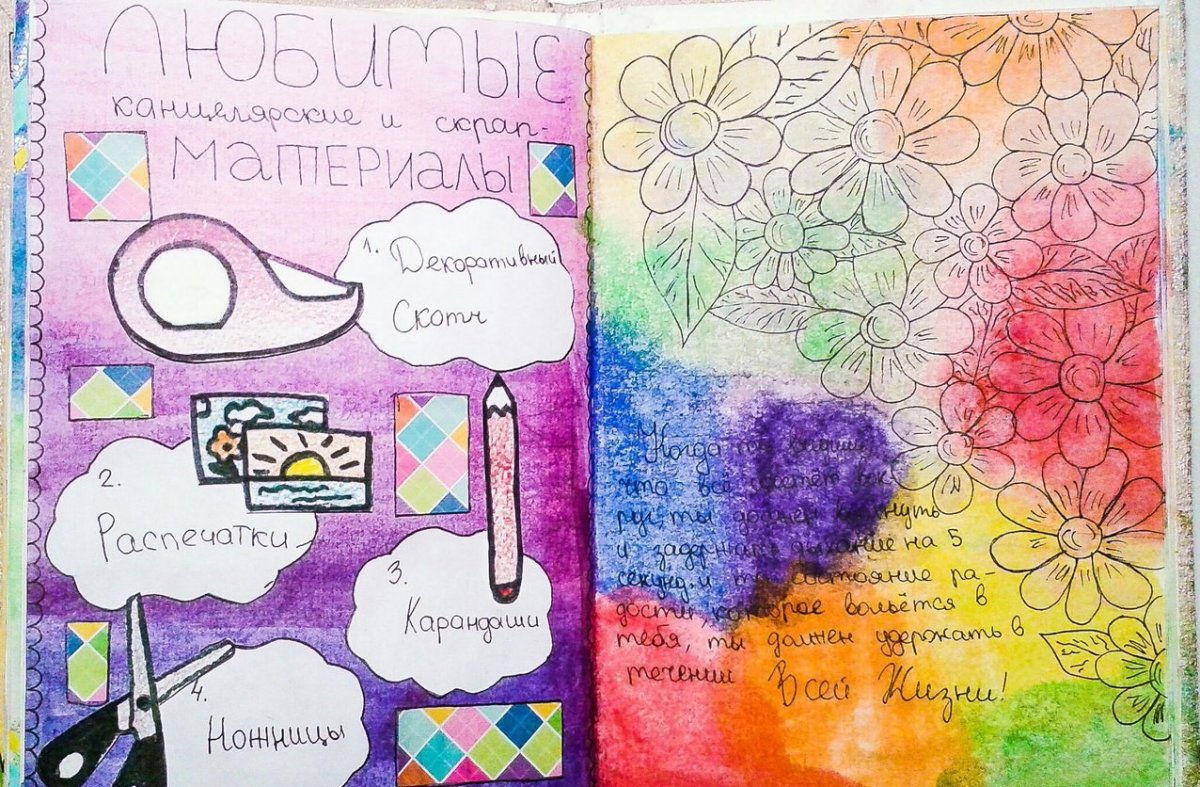 ЛЮБИМЫЕ
канцелярские и скрап-
МАТЕРИАЛЫ
1. Декоративный
Скотч
2.
Распечатки
3.
Карандаши
4.
Ножницы
Когда ты видишь,
что всё цветёт вок
руг, ты должен
и задержать дыхание на 5
секунд. и то состояние ра-
дости, которое вольётся в
тебя, ты должен удержать в
течении Всей Жизни!